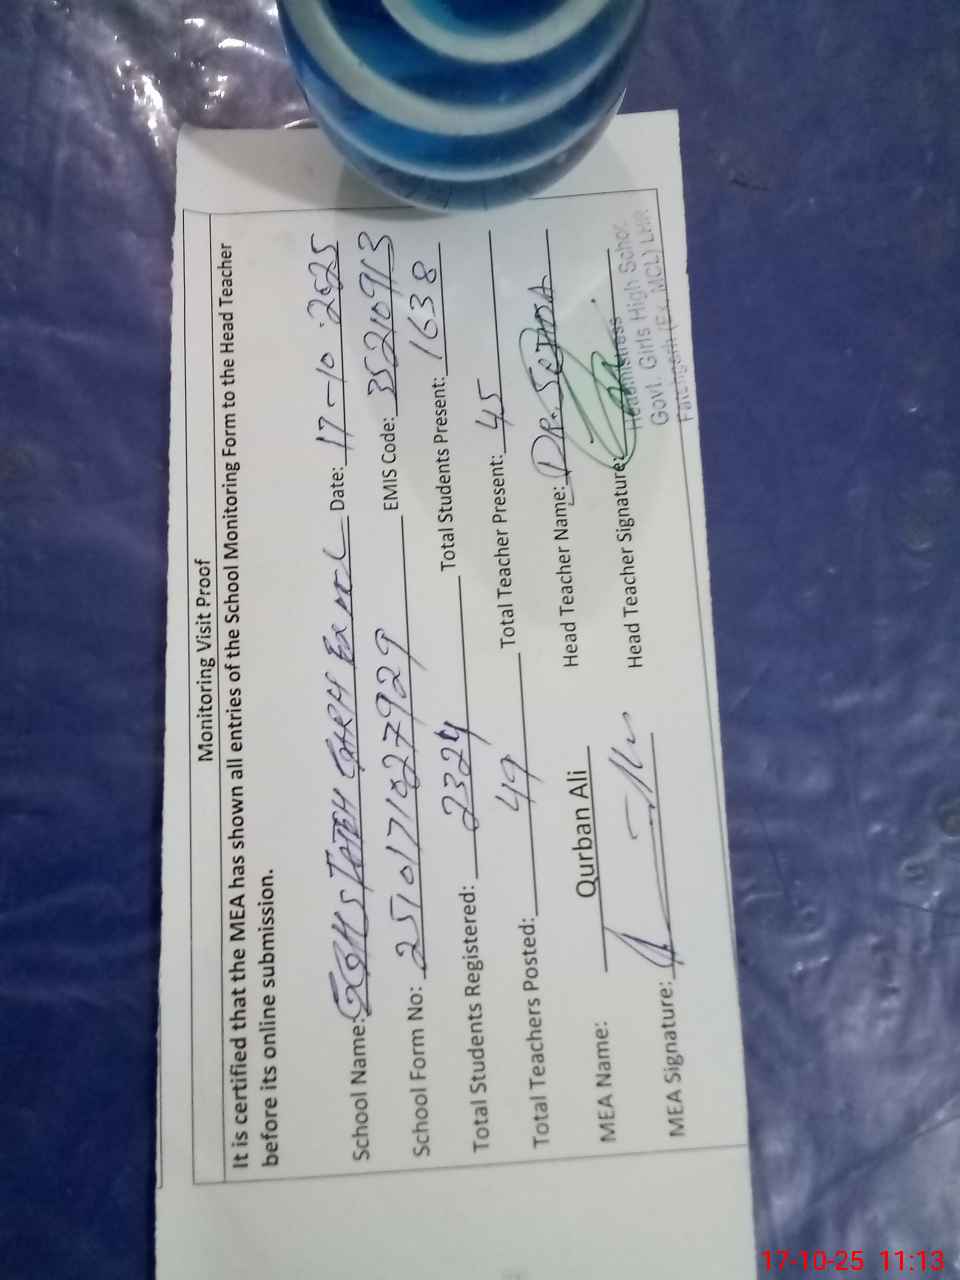 Monitoring Visit Proof
It is certified that the MEA has shown all entries of the School Monitoring Form to the Head Teacher
before its online submission.
School Name: GGHS FATEH GARH Ex MCL Date: 17-10-2025
School Form No: 2510171027929 EMIS Code: 35210913
Total Students Registered: 2324 Total Students Present: 1638
Total Teachers Posted: 49 Total Teacher Present: 45
MEA Name: Qurban Ali Head Teacher Name: DR.
MEA Signature: Head Teacher Signature:
Headmistress
Govt. Girls High School
Fatehgarh (Ex MCL) LHR
17-10-25 11:13